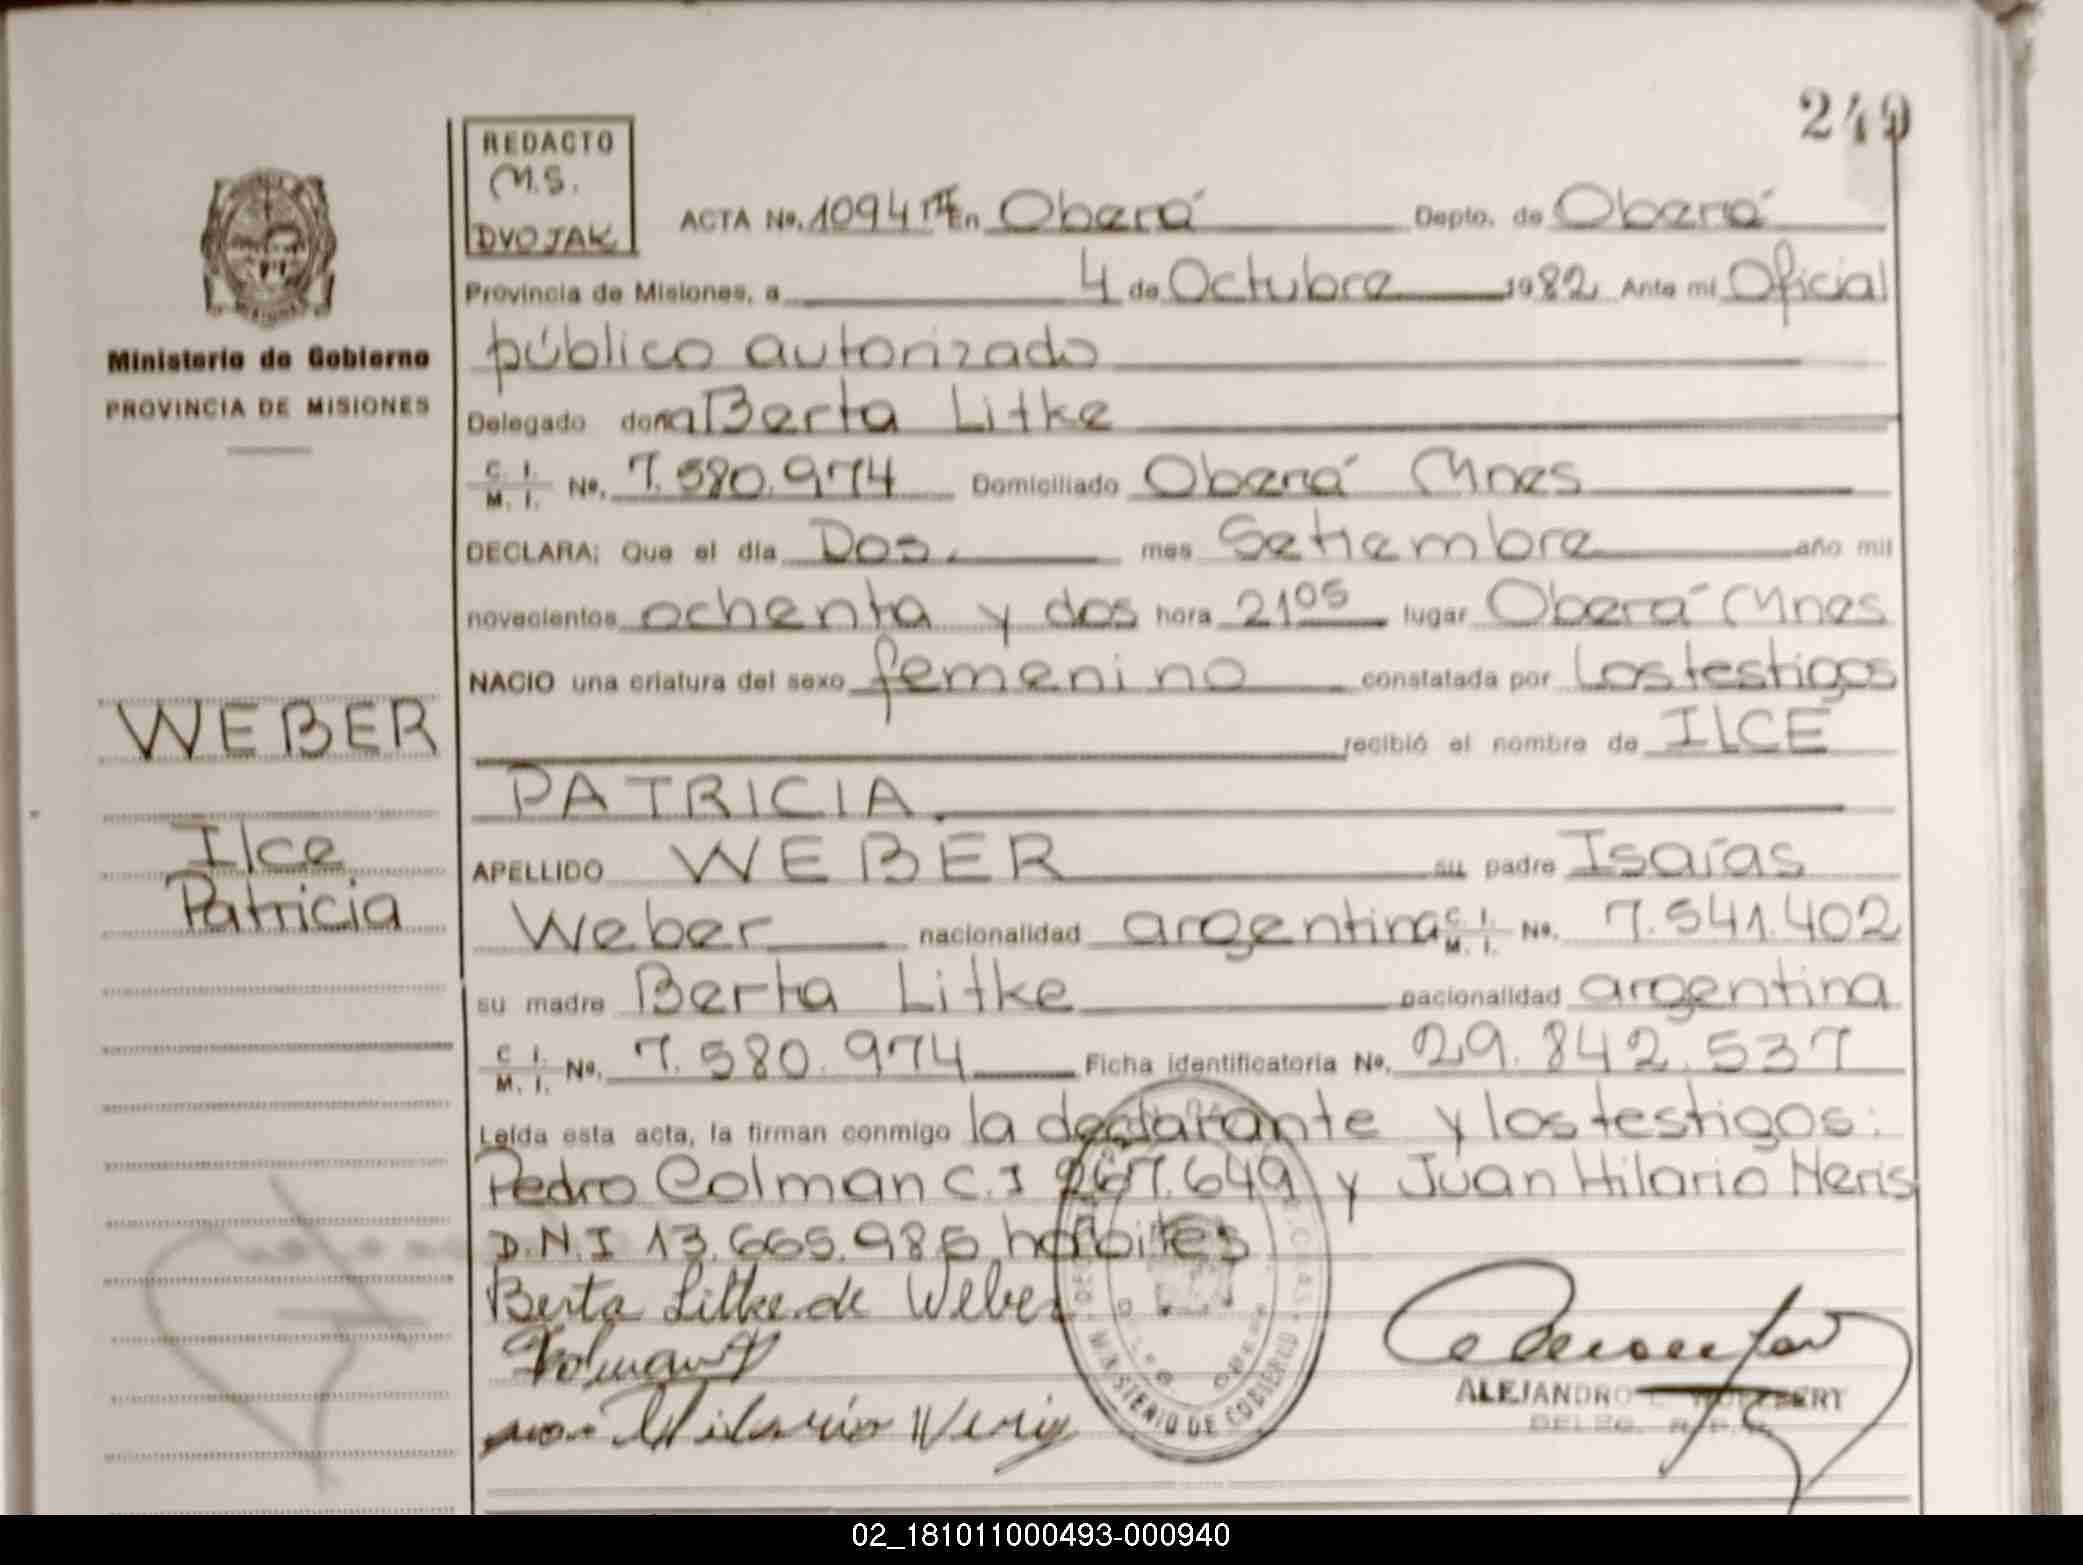 249
REDACTO
M.S.
DVOJAK
ACTA No. 1094 En Oberá Depto. de Oberá
Provincia de Misiones, a 4 de Octubre 1982 Ante mi Oficial
público autorizado
Ministerio de Gobierno
PROVINCIA DE MISIONES
Delegado doña Berta Litke
C. I.
M. I. No. 7.580.974 Domiciliado Oberá Mnes
DECLARA; Que el día Dos. mes Setiembre año mil
novecientos ochenta y dos hora 21 05 lugar Oberá Mnes
NACIO una criatura del sexo femenino constatada por Los testigos
recibió el nombre de ILCE
PATRICIA.
WEBER
Ilce
Patricia
APELLIDO WEBER su padre Isaías
Weber nacionalidad argentina C. I. M. I. No. 7.541.402
su madre Berta Litke nacionalidad argentina
C. I.
M. I. No. 7.580.974 Ficha identificatoria No. 29.842.537
Leída esta acta, la firman conmigo la declarante y los testigos:
Pedro Colman C.I 267.649 y Juan Hilario Neris
D.N.I 13.665.985 habiles
Berta Litke de Weber
Hilario Neris
MINISTERIO DE GOBIERNO
ALEJANDRO
02_181011000493-000940